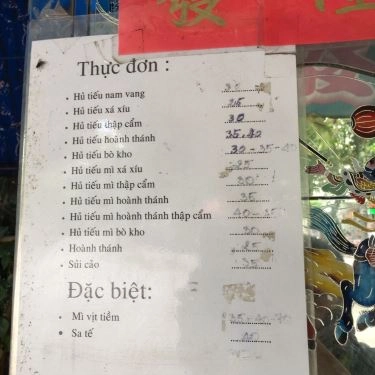 發
Thực đơn :
• Hủ tiếu nam vang
• Hủ tiếu xá xíu
• Hủ tiếu thập cẩm 30
• Hủ tiếu hoành thánh 35.40
• Hủ tiếu bò kho 30 - 35 -
• Hủ tiếu mì xá xíu
• Hủ tiếu mì thập cẩm 30
• Hủ tiếu mì hoành thánh 35
• Hủ tiếu mì hoành thánh thập cẩm 40 -
• Hủ tiếu mì bò kho 30
• Hoành thánh
• Sủi cảo 35
Đặc biệt:
• Mì vịt tiềm
• Sa tế